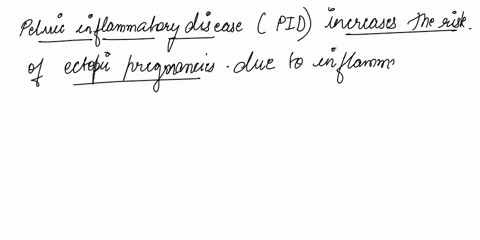 Pelvic inflammatory disease (PID) increases the risk.
of ectopic pregnancies. due to inflamm